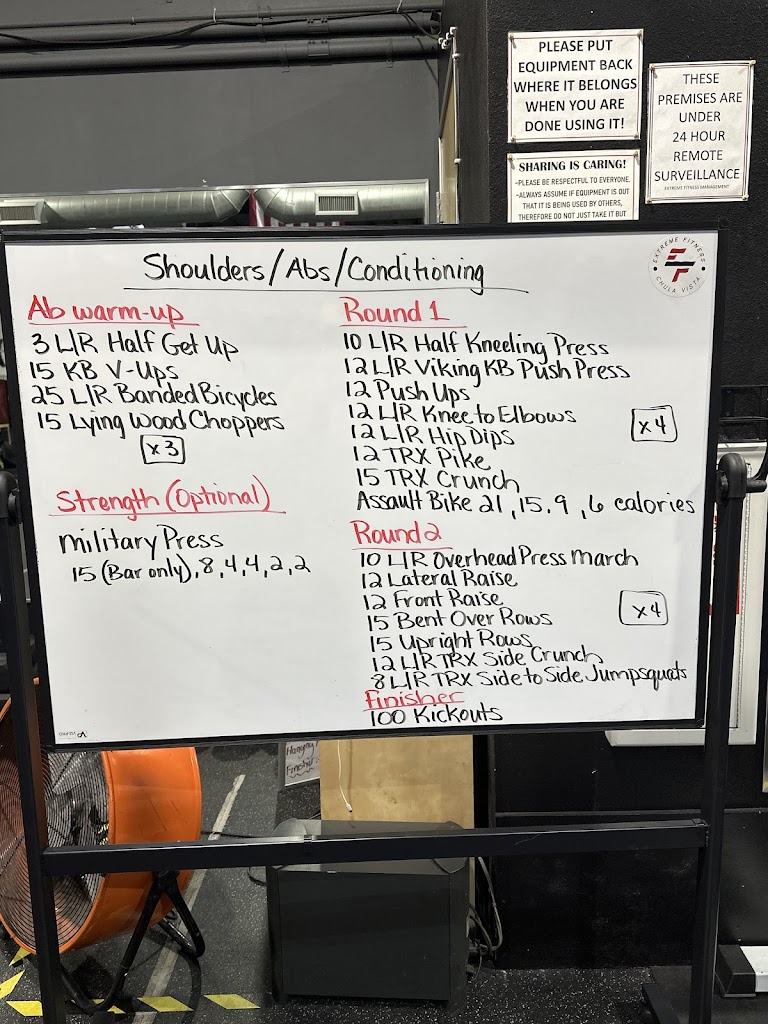 PLEASE PUT
EQUIPMENT BACK
WHERE IT BELONGS
WHEN YOU ARE
DONE USING IT!
THESE
PREMISES ARE
UNDER
24 HOUR
REMOTE
SURVEILLANCE
EXTREME FITNESS MANAGEMENT
SHARING IS CARING!
-PLEASE BE RESPECTFUL TO EVERYONE.
-ALWAYS ASSUME IF EQUIPMENT IS OUT
THAT IT IS BEING USED BY OTHERS,
THEREFORE DO NOT JUST TAKE IT BUT
Shoulders/Abs/Conditioning
EXTREME FITNESS
EF
CHULA VISTA
Ab warm-up
3 L/R Half Get Up
15 KB V-Ups
25 L/R Banded Bicycles
15 Lying Wood Choppers
x3
Strength (Optional)
Military Press
15 (Bar only), 8, 4, 4, 2, 2
Round 1
10 L/R Half Kneeling Press
12 L/R Viking KB Push Press
12 Push Ups
12 L/R Knee to Elbows
12 L/R Hip Dips
12 TRX Pike
15 TRX Crunch
Assault Bike 21, 15, 9, 6 calories
x4
Round 2
10 L/R Overhead Press March
12 Lateral Raise
12 Front Raise
15 Bent Over Rows
15 Upright Rows
12 L/R TRX Side Crunch
8 L/R TRX Side to Side Jumpsquats
x4
Finisher
100 Kickouts